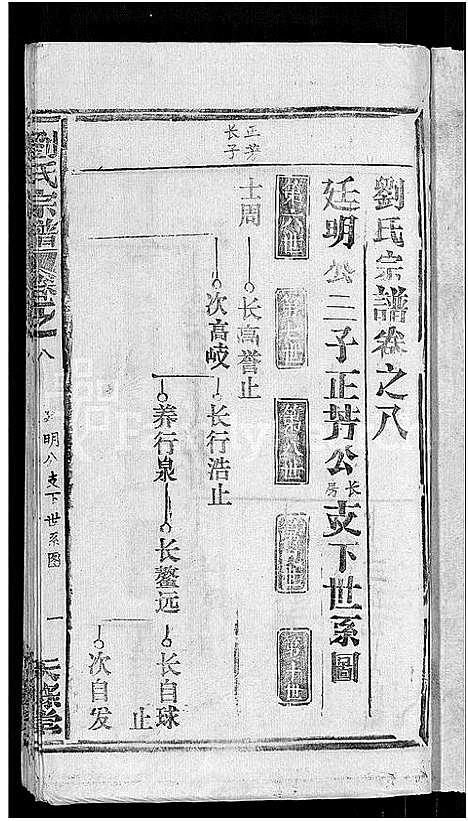 劉氏宗譜卷之八
廷明公二子正芳公長房支下世系圖
第六世
第七世
第八世
第九世
第十世
正芳
长子
士周
长高誉止
次高岐
长行浩止
养行泉
长鳌远
长自球止
次自发
劉氏宗譜卷之八
明公支下世系图
一